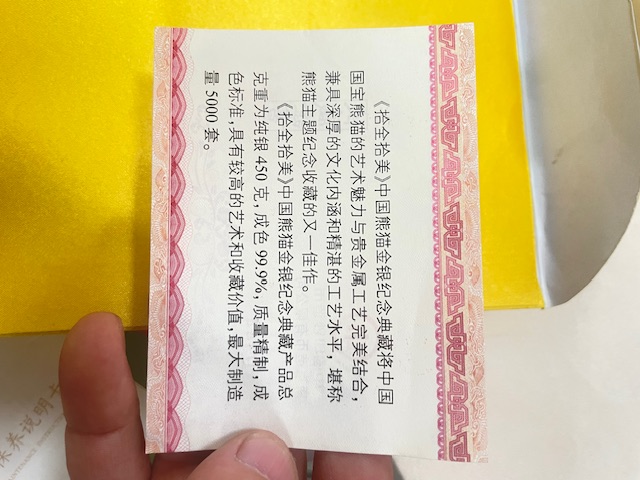 《拾全拾美》中国熊猫金银纪念典藏将中国
国宝熊猫的艺术魅力与贵金属工艺完美结合，
兼具深厚的文化内涵和精湛的工艺水平，堪称
熊猫主题纪念收藏的又一佳作。
《拾全拾美》中国熊猫金银纪念典藏产品总
克重为纯银 450 克，成色 99.9%，质量精制，成
色标准，具有较高的艺术和收藏价值，最大制造
量 5000 套。
保养说明卡